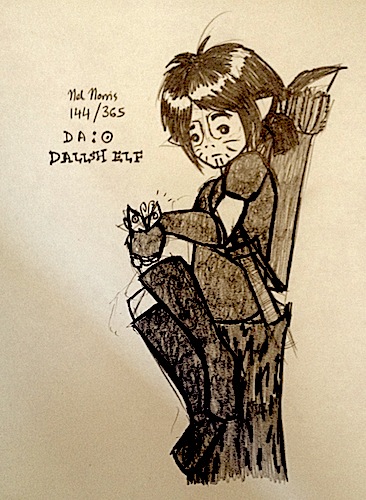 Nel Norris
144/365
DA:O
DALLSH ELF